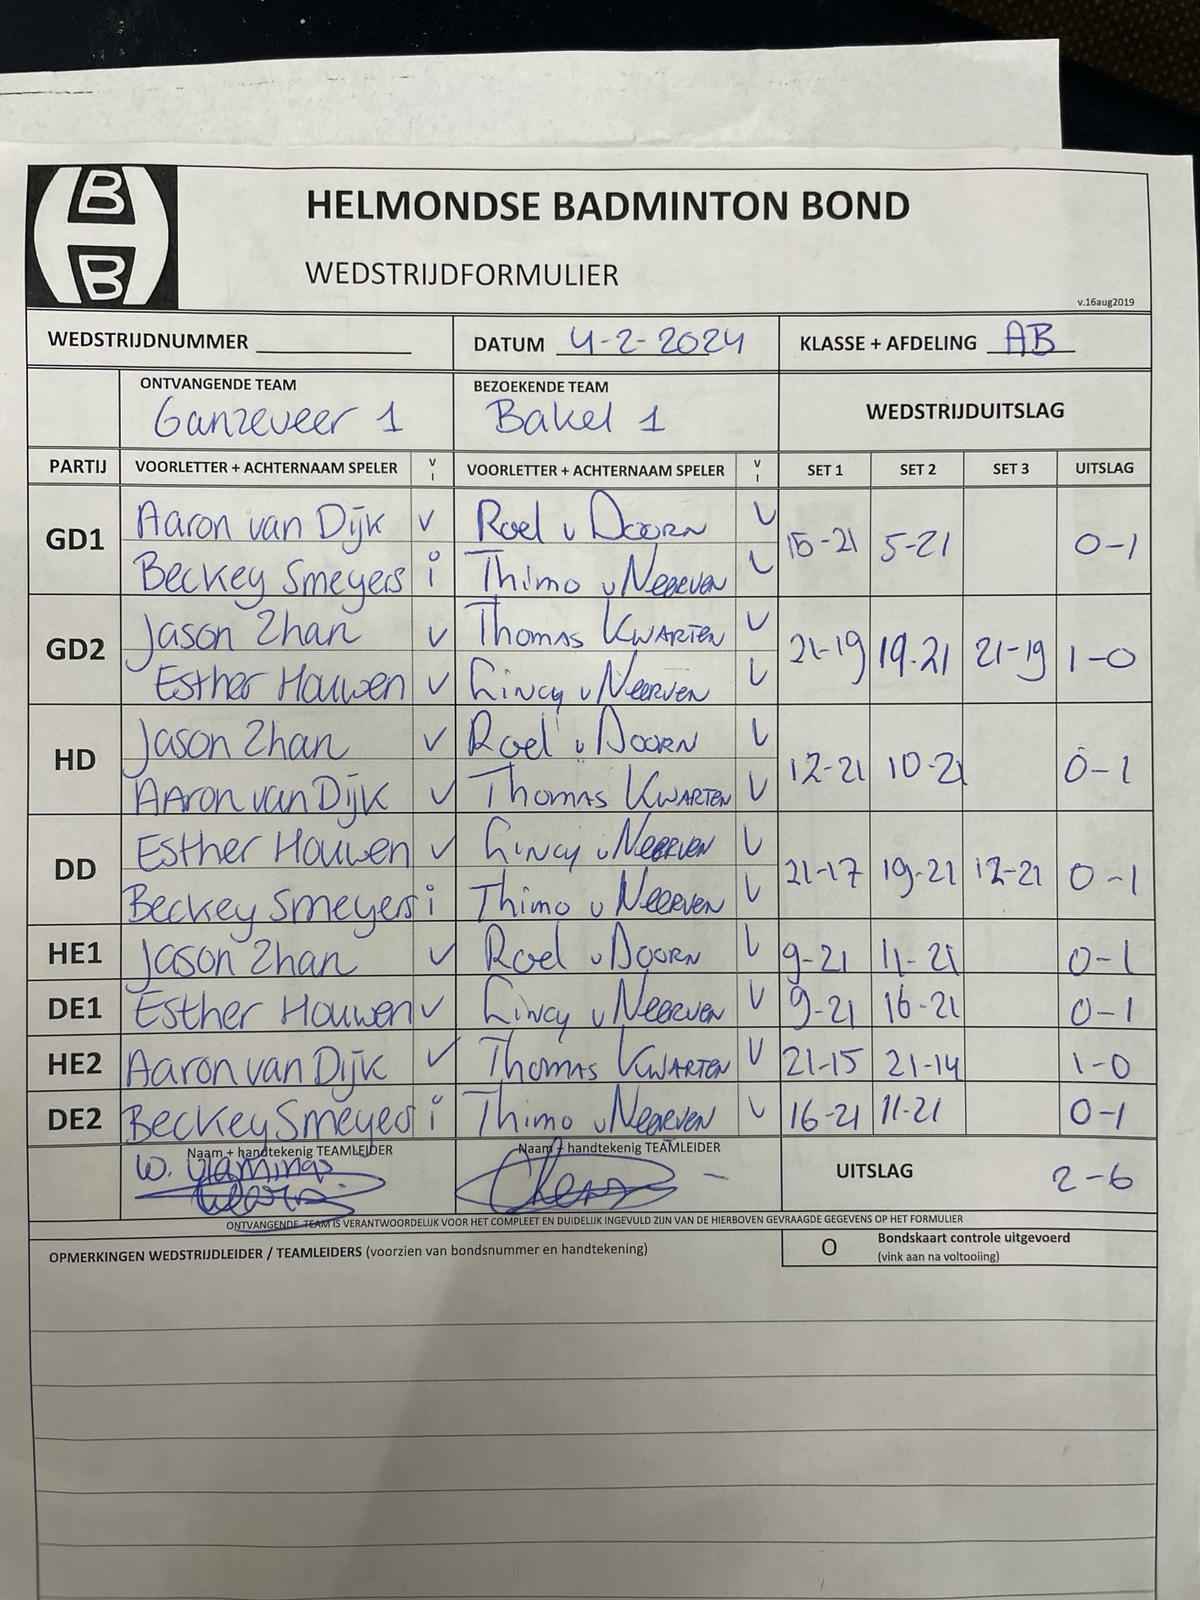 B
B
HELMONDSE BADMINTON BOND
WEDSTRIJDFORMULIER
v.16aug2019
WEDSTRIJDNUMMER DATUM 4-2-2024 KLASSE + AFDELING AB
ONTVANGENDE TEAM BEZOEKENDE TEAM WEDSTRIJDUITSLAG
Ganzeveer 1 Bakel 1
PARTIJ VOORLETTER + ACHTERNAAM SPELER V I VOORLETTER + ACHTERNAAM SPELER V I SET 1 SET 2 SET 3 UITSLAG
GD1 Aaron van Dijk v Roel v Doorn v 15-21 5-21 0-1
Beckey Smeyers i Thimo v Neerven v
GD2 Jason Zhan v Thomas Kwarten v 21-19 19-21 21-19 1-0
Esther Houwen v Lincy v Neerven v
HD Jason Zhan v Roel v Doorn v 12-21 10-21 0-1
Aaron van Dijk v Thomas Kwarten v
DD Esther Houwen v Lincy v Neerven v 21-17 19-21 12-21 0-1
Beckey Smeyers i Thimo v Neerven v
HE1 Jason Zhan v Roel v Doorn v 9-21 11-21 0-1
DE1 Esther Houwen v Lincy v Neerven v 9-21 16-21 0-1
HE2 Aaron van Dijk v Thomas Kwarten v 21-15 21-14 1-0
DE2 Beckey Smeyers i Thimo v Neerven v 16-21 11-21 0-1
Naam + handtekenig TEAMLEIDER Naam + handtekenig TEAMLEIDER UITSLAG 2-6
W. Vlamings
ONTVANGENDE TEAM IS VERANTWOORDELIJK VOOR HET COMPLEET EN DUIDELIJK INGEVULD ZIJN VAN DE HIERBOVEN GEVRAAGDE GEGEVENS OP HET FORMULIER
OPMERKINGEN WEDSTRIJDLEIDER / TEAMLEIDERS (voorzien van bondsnummer en handtekening) O Bondskaart controle uitgevoerd
(vink aan na voltooiing)